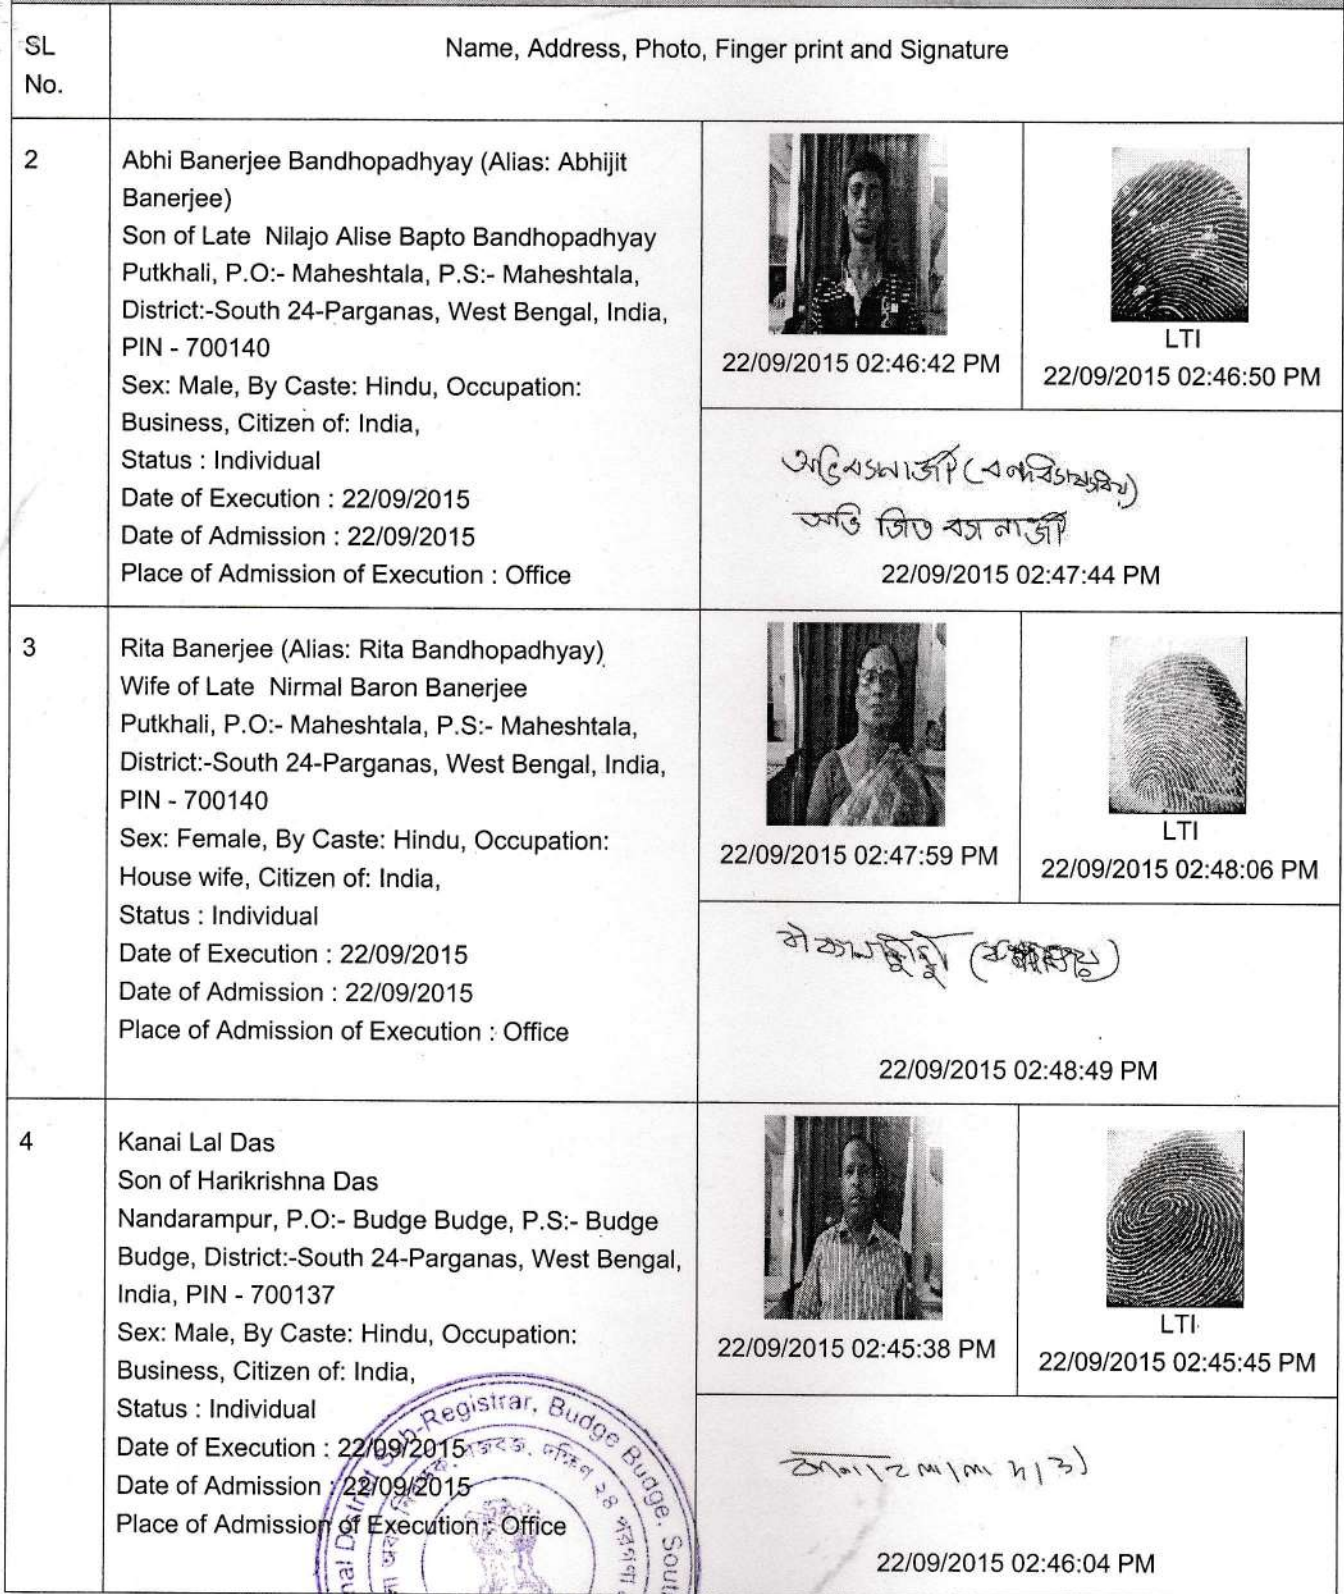 SL
No.
Name, Address, Photo, Finger print and Signature
2
Abhi Banerjee Bandhopadhyay (Alias: Abhijit
Banerjee)
Son of Late Nilajo Alise Bapto Bandhopadhyay
Putkhali, P.O:- Maheshtala, P.S:- Maheshtala,
District:-South 24-Parganas, West Bengal, India,
PIN - 700140
Sex: Male, By Caste: Hindu, Occupation:
Business, Citizen of: India,
Status : Individual
Date of Execution : 22/09/2015
Date of Admission : 22/09/2015
Place of Admission of Execution : Office
22/09/2015 02:46:42 PM
LTI
22/09/2015 02:46:50 PM
অভি জিত ব্যানার্জী
22/09/2015 02:47:44 PM
3
Rita Banerjee (Alias: Rita Bandhopadhyay)
Wife of Late Nirmal Baron Banerjee
Putkhali, P.O:- Maheshtala, P.S:- Maheshtala,
District:-South 24-Parganas, West Bengal, India,
PIN - 700140
Sex: Female, By Caste: Hindu, Occupation:
House wife, Citizen of: India,
Status : Individual
Date of Execution : 22/09/2015
Date of Admission : 22/09/2015
Place of Admission of Execution : Office
22/09/2015 02:47:59 PM
LTI
22/09/2015 02:48:06 PM
22/09/2015 02:48:49 PM
4
Kanai Lal Das
Son of Harikrishna Das
Nandarampur, P.O:- Budge Budge, P.S:- Budge
Budge, District:-South 24-Parganas, West Bengal,
India, PIN - 700137
Sex: Male, By Caste: Hindu, Occupation:
Business, Citizen of: India,
Status : Individual
Date of Execution : 22/09/2015
Date of Admission : 22/09/2015
Place of Admission of Execution : Office
22/09/2015 02:45:38 PM
LTI
22/09/2015 02:45:45 PM
22/09/2015 02:46:04 PM
Sub-Registrar, Budge Budge,
দক্ষিণ ২৪ পরগণা